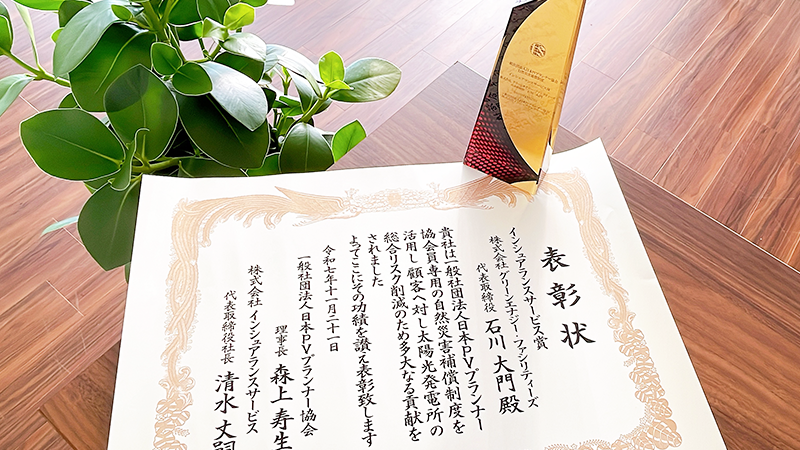 表彰状
インシュアランスサービス賞
株式会社グリーンエナジー・ファシリティーズ
代表取締役 石川 大門 殿
貴社は一般社団法人日本PVプランナー
協会員専用の自然災害補償制度を
活用し顧客へ対し太陽光発電所の
総合リスク削減のため多大なる貢献を
されました
よってここにその功績を讃え表彰致します
令和七年十一月二十一日
一般社団法人日本PVプランナー協会
理事長 森上 寿生
株式会社 インシュアランスサービス
代表取締役社長 清水 丈嗣